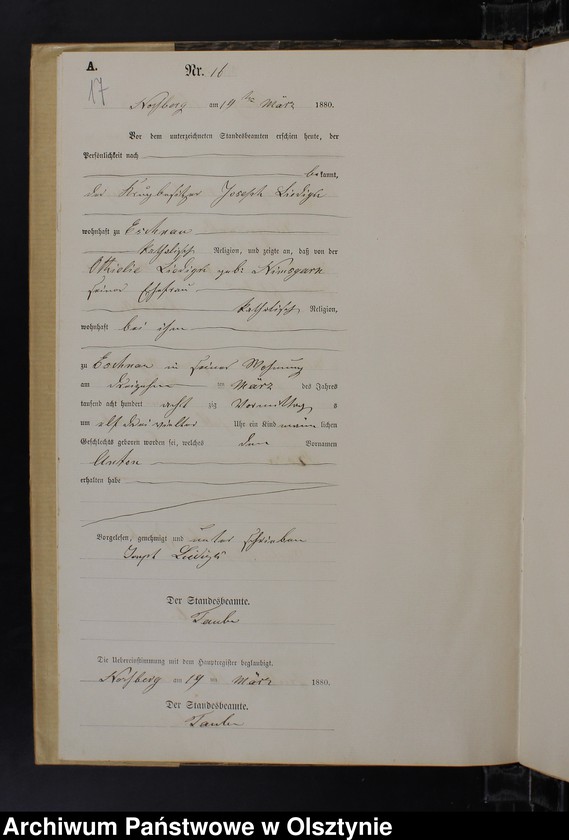 A.
Nr. 16
17
am 19 ten März 1880.
Vor dem unterzeichneten Standesbeamten erschien heute, der
Persönlichkeit nach
bekannt,
der Krugbesitzer Joseph
wohnhaft zu Eschnau
katholischer Religion, und zeigte an, daß von der
geb:
seiner Ehefrau
katholischer Religion,
wohnhaft bei ihm
zu Eschnau in seiner Wohnung
am dreizehn ten März des Jahres
tausend acht hundert acht zig Vormittags
um elf drei viertel Uhr ein Kind männlichen
Geschlechts geboren worden sei, welches den Vornamen
Anton
erhalten habe
Vorgelesen, genehmigt und unterschrieben
Joseph
Der Standesbeamte.
Taube
Die Uebereinstimmung mit dem Hauptregister beglaubigt.
am 19 ten März 1880.
Der Standesbeamte.
Taube
Archiwum Państwowe w Olsztynie